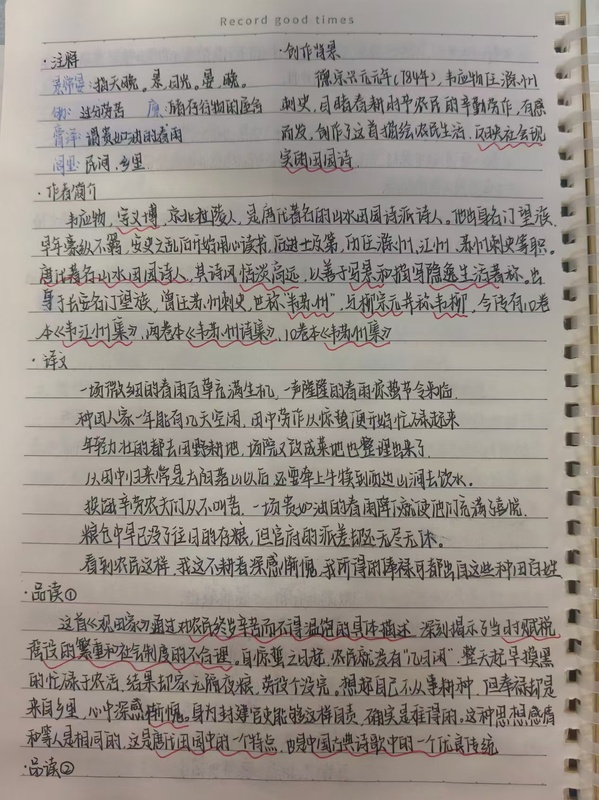 Record good times
·注释
景常晏：指天晚。景，日光。晏，晚。
劬：过分劳苦 廪：储存谷物的仓
膏泽：谓贵如油的春雨
闾里：民间，乡里
·创作背景
德宗兴元元年(784年)，韦应物任滁州
刺史，目睹春耕时节农民的辛勤劳作，有感
而发，创作了这首描绘农民生活，反映社会现
实的田园诗
·作者简介
韦应物，字义博，京兆杜陵人，是唐代著名的山水田园诗派诗人。他出身名门望族，
早年豪纵不羁，安史之乱后折节用心读书，后进士及第，历任滁州、江州、苏州刺史等职。
唐代著名山水田园诗人，其诗风恬淡高远，以善于写景和描写隐逸生活著称。出
身于长安名门望族，曾任苏州刺史，世称“韦苏州”，与柳宗元并称“韦柳”，今传有10卷
本《韦江州集》，两卷本《韦苏州诗集》，10卷本《韦苏州集》
·译文
一场微细的春雨百草充满生机，一声隆隆的春雷惊蛰节令来临
种田人家一年能有几天空闲，田中劳作从惊蛰便开始忙碌起来
年轻力壮的都去田野耕地，场院又改成菜地也整理出来了
从田中归来常是太阳落山以后，还要牵上牛犊到西边山涧去饮水。
挨饿辛劳农夫们从不叫苦，一场贵如油的春雨降了就使他们充满了喜悦
粮仓中早已没了往日的存粮，但官府的派差却还无尽无休。
看到农民这样，我这不耕者深感惭愧，我所得的俸禄可都出自这些种田百姓
·品读①
这首《观田家》通过对农民终岁辛苦而不得温饱的具体描述，深刻揭示了当时赋税
徭役的繁重和社会制度的不合理。自惊蛰之日起，农民就没有“几日闲”，整天起早摸黑
的忙碌于农活，结果却家无隔夜粮，劳役个没完。想起自己不从事耕种，但奉禄却是
来自乡里，心中深感惭愧。身为封建官吏能够这样自责，确实是难得的。这种思想感情
和等人是相同的，这是唐代田园中的一个特点，也是中国古典诗歌中的一个优良传统
·品读②